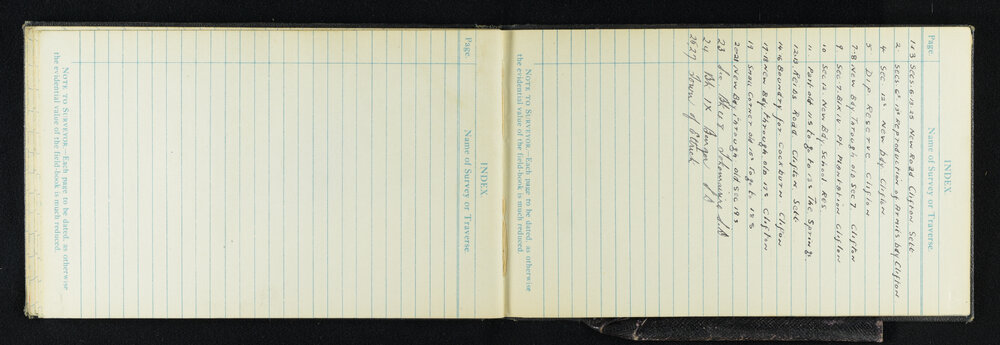 INDEX.
Page. Name of Survey or Traverse.
1&3 Secs. 6.13.25 New Road Clifton Sett
2. Secs. 6 13 Reproduction of bdy Clifton
4. Sec 12 New Bdy Clifton
5 Dip Reserve Clifton
7-8 New Bdy Through old Sec 7. Clifton
9. Sec 7. Blk IV Pt Plantation Clifton
10 Sec 12 New Bdy School Res.
11 Part old 11 to go to 12
12&13 Reids Road Clifton Sett
14 16 Boundry for Cockburn Clifton
17-18 New Bdy through old 17 Clifton
19 Small corner old 18 to go to 19
20&21 New Bdy Through old Sec 19
23 Sec Bk S.D
24 Bk IX Burger S.D
26,27 Town of Ettrick
NOTE TO SURVEYOR.—Each page to be dated, as otherwise
the evidential value of the field-book is much reduced.
INDEX.
Page. Name of Survey or Traverse.
NOTE TO SURVEYOR.—Each page to be dated, as otherwise
the evidential value of the field-book is much reduced.